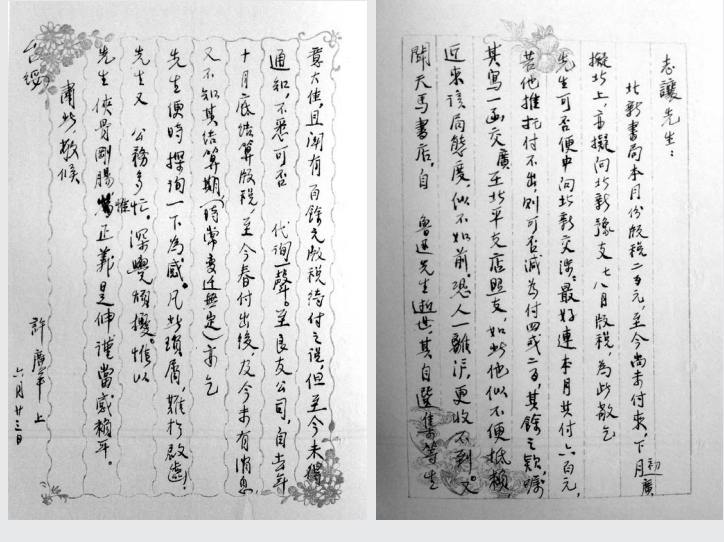 志讓先生：
北新書局本月份版稅二百元，至今尚未付來，下月初廣
擬北上，亦擬向北新豫支七八月版稅，為此敬乞
先生可否便中向北新交涉，最好連本月共付六百元，
若他推托付不出，則可否減為付四或二百，其餘之欵，囑
其寫一函交廣至北平支店照支，如此他似不便抵賴，
近來該局態度，似不如前，恐人一離滬，更收不到。又
聞天馬書店，自 魯迅先生逝世，其自選集等生
意大佳，且聞有百餘元版稅待付之說，但至今未得
通知，不悉可否 代詢一聲。至良友公司，自去年
十月底結算版稅，至今春付出後，及今未有消息，
又不知其結算期（時常變迁無定）亦乞
先生便時探詢一下為感。凡此瑣屑，難於啟齒，
先生又 公務多忙。深覺煩擾。惟以
先生俠骨剛腸，惟正義是伸謹當感賴耳。
肅此，敬候
台綏
許廣平 上
六月廿三日